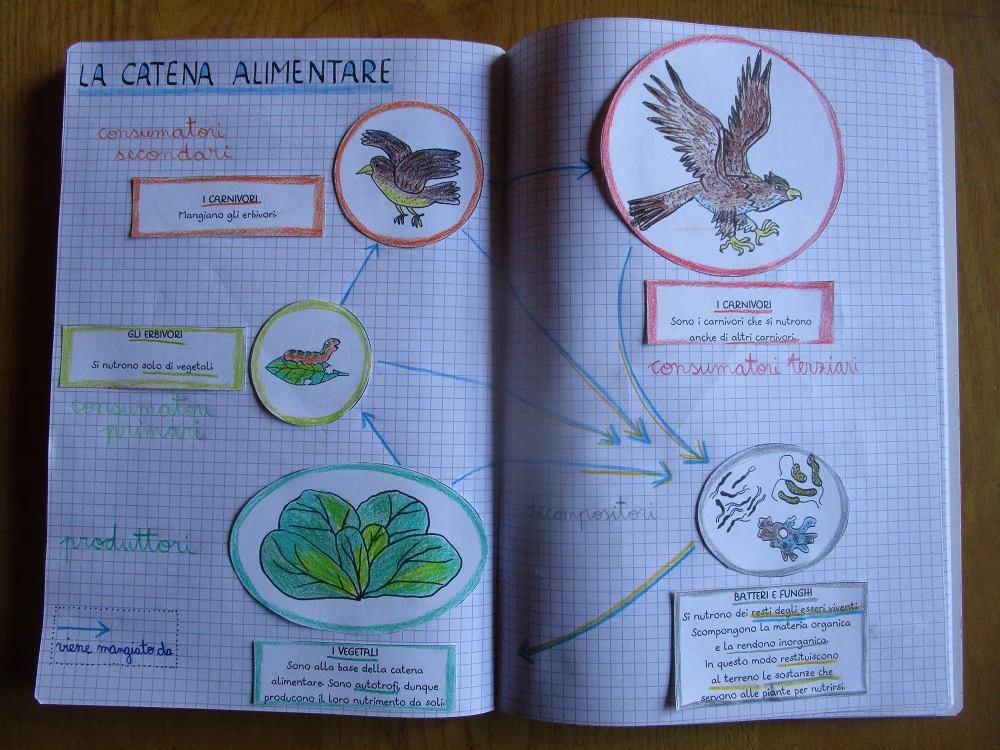 LA CATENA ALIMENTARE
consumatori
secondari
I CARNIVORI
Mangiano gli erbivori.
GLI ERBIVORI
Si nutrono solo di vegetali.
consumatori
primari
produttori
viene mangiato da
I VEGETALI
Sono alla base della catena
alimentare. Sono autotrofi, dunque
producono il loro nutrimento da soli.
I CARNIVORI
Sono i carnivori che si nutrono
anche di altri carnivori.
consumatori terziari
decompositori
BATTERI E FUNGHI
Si nutrono dei resti degli esseri viventi.
Scompongono la materia organica
e la rendono inorganica.
In questo modo restituiscono
al terreno le sostanze che
servono alle piante per nutrirsi.